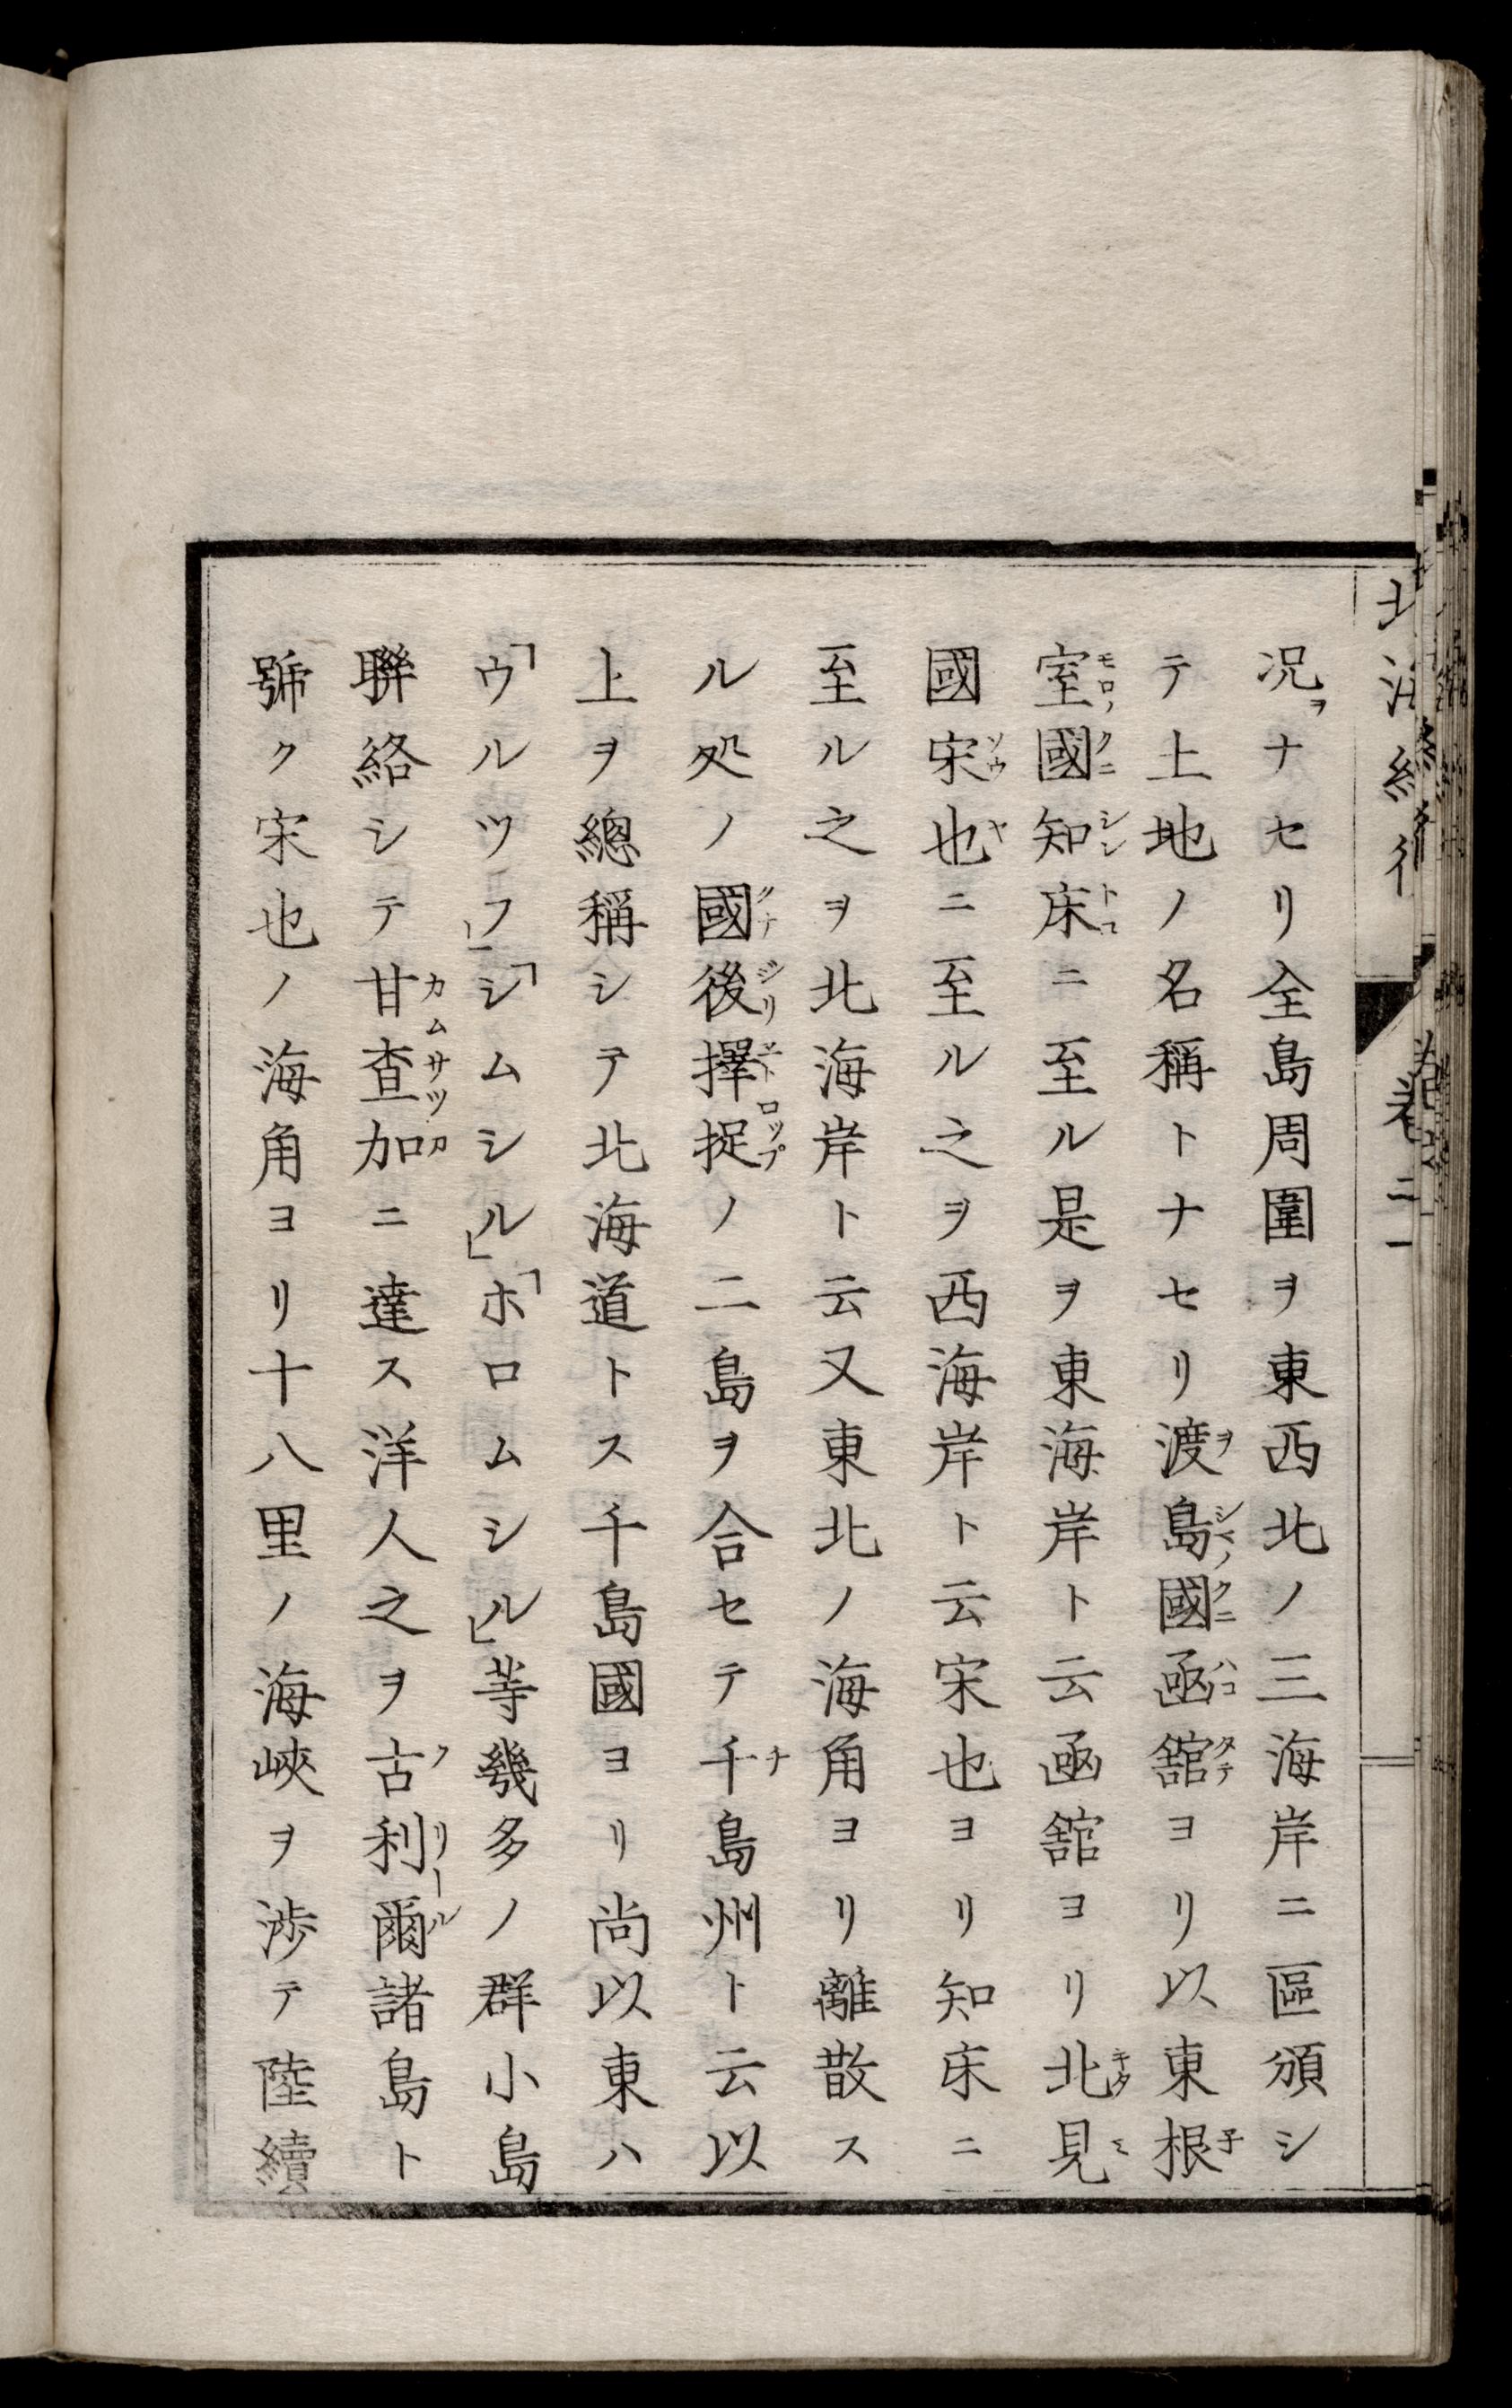 况ヲナセリ全島周圍ヲ東西北ノ三海岸ニ區頒シ
テ土地ノ名稱トナセリ渡島國凾舘ヨリ以東根
室國知床ニ至ル是ヲ東海岸ト云凾舘ヨリ北見
國宋也ニ至ル之ヲ西海岸ト云宋也ヨリ知床ニ
至ル之ヲ北海岸ト云又東北ノ海角ヨリ離散ス
ル処ノ國後擇捉ノ二島ヲ合セテ千島州ト云以
上ヲ總稱シテ北海道トス千島國ヨリ尚以東ハ
「ウルツフ」「シムシル」「ホロムシル」等幾多ノ群小島
聯絡シテ甘查加ニ達ス洋人之ヲ古利爾諸島ト
號ク宋也ノ海角ヨリ十八里ノ海峽ヲ渉テ陸續